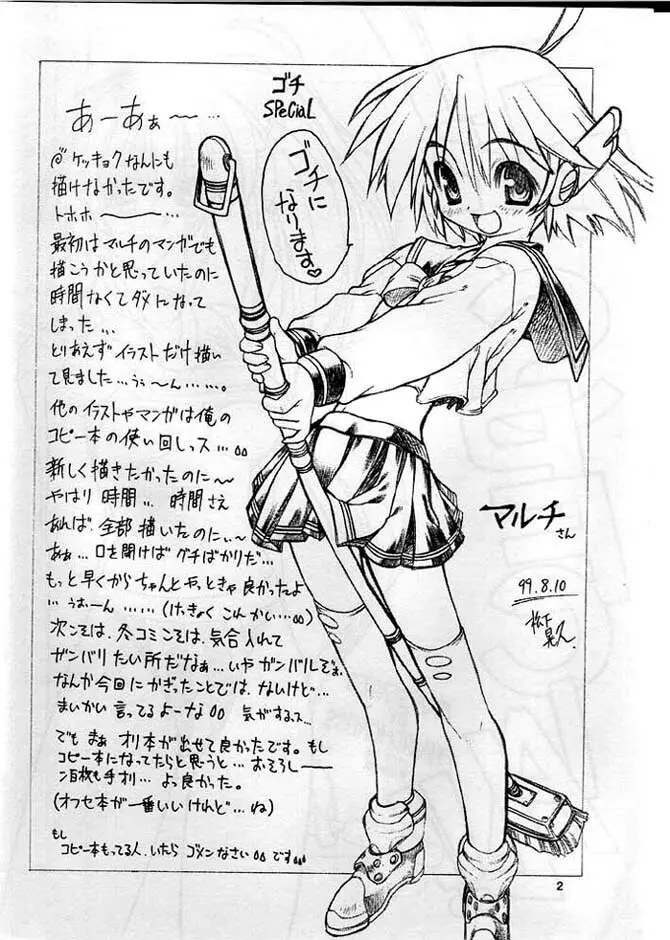 ゴチ
SPeCiaL
ゴチに
なります。♡
あーあぁ〜…
ケッキョクなんにも
描けなかったです。
トホホ〜〜…
最初はマルチのマンガでも
描こうかと思っていたのに
時間なくてダメになって
しまった…
とりあえずイラストだけ描い
て見ました…うぅーん……。
他のイラストやマンガは俺の
コピー本の使い回しっス…
新しく描きたかったのに〜
やはり時間…時間さえ
あれば、全部描いたのにぃ〜
あぁ…口を開けばグチばかりだ…
もっと早くからちゃんとやっときゃ良かったよ
…うぉーん……(けっきょくこんかい…)
次こそは、冬コミこそは、気合入れて
ガンバりたい所だなぁ…いやガンバルぞぉ、
なんか今回にかぎったことでは、ないけど…
まいかい言ってるよーな 気がするっス…
でもまぁオリ本が出せて良かったです。もし
コピー本になってたらと思うと…おそろし——
百枚も手オリ…よっ良かった。
(オフセ本が一番いいけれど…ね)
もし
コピー本もってる人、いたらゴメンなさい です
マルチさん
99.8.10
2